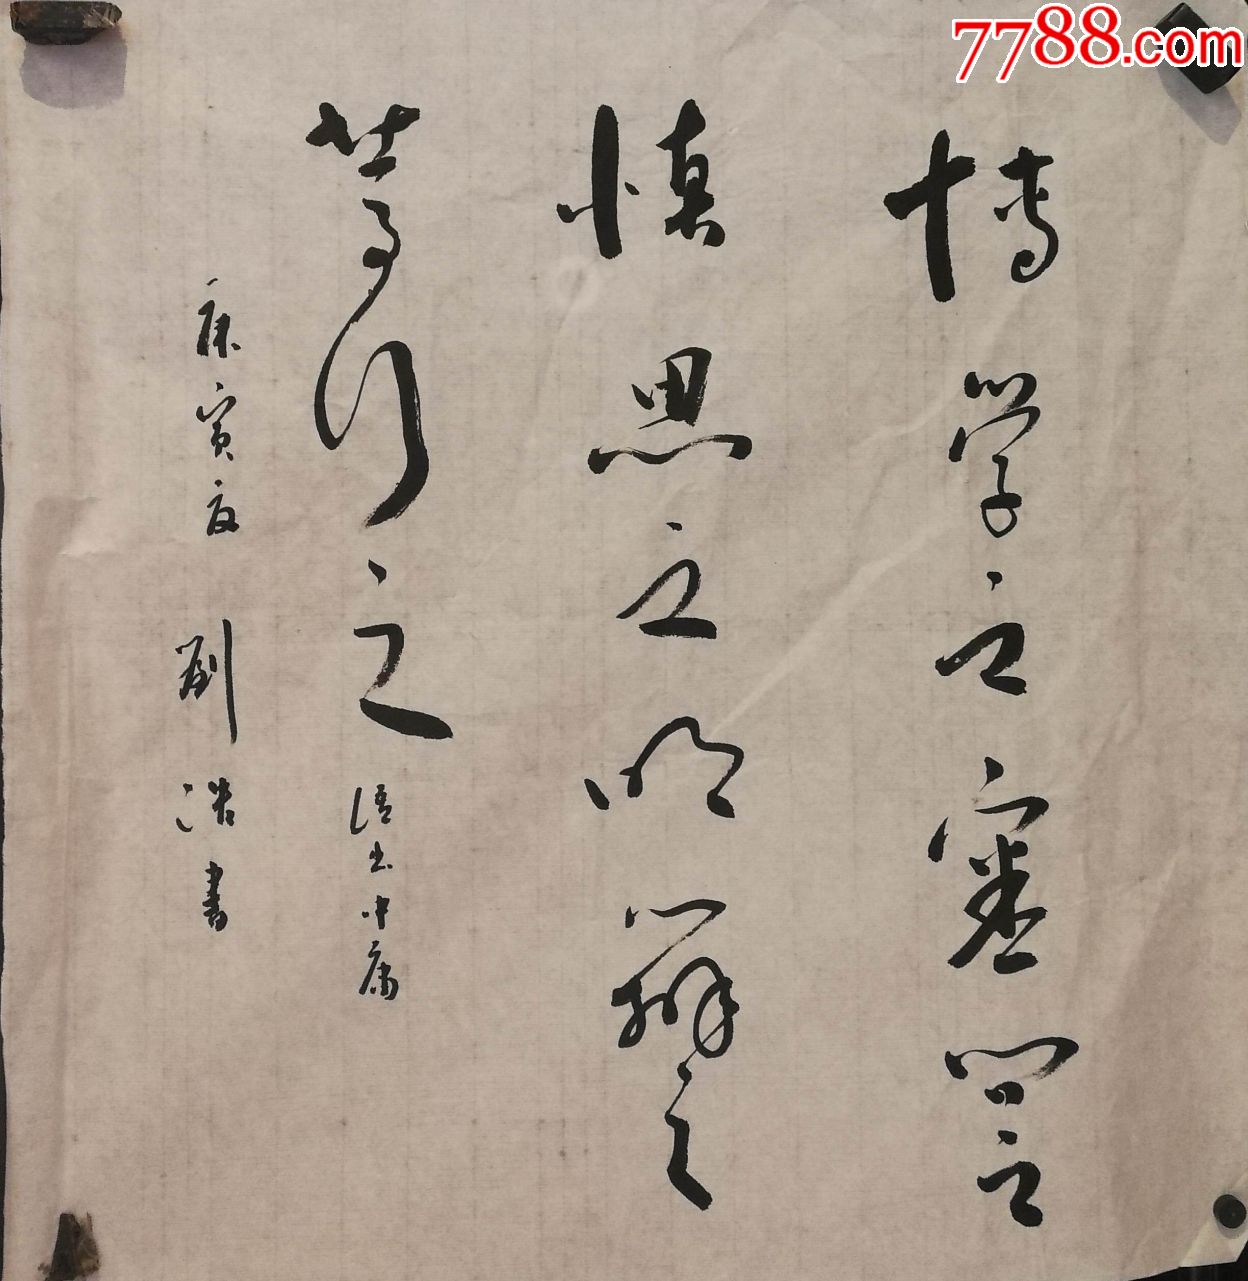 博学之审问之
慎思之明辨之
笃行之 语出中庸
庚寅夏 刘浩書
7788.com